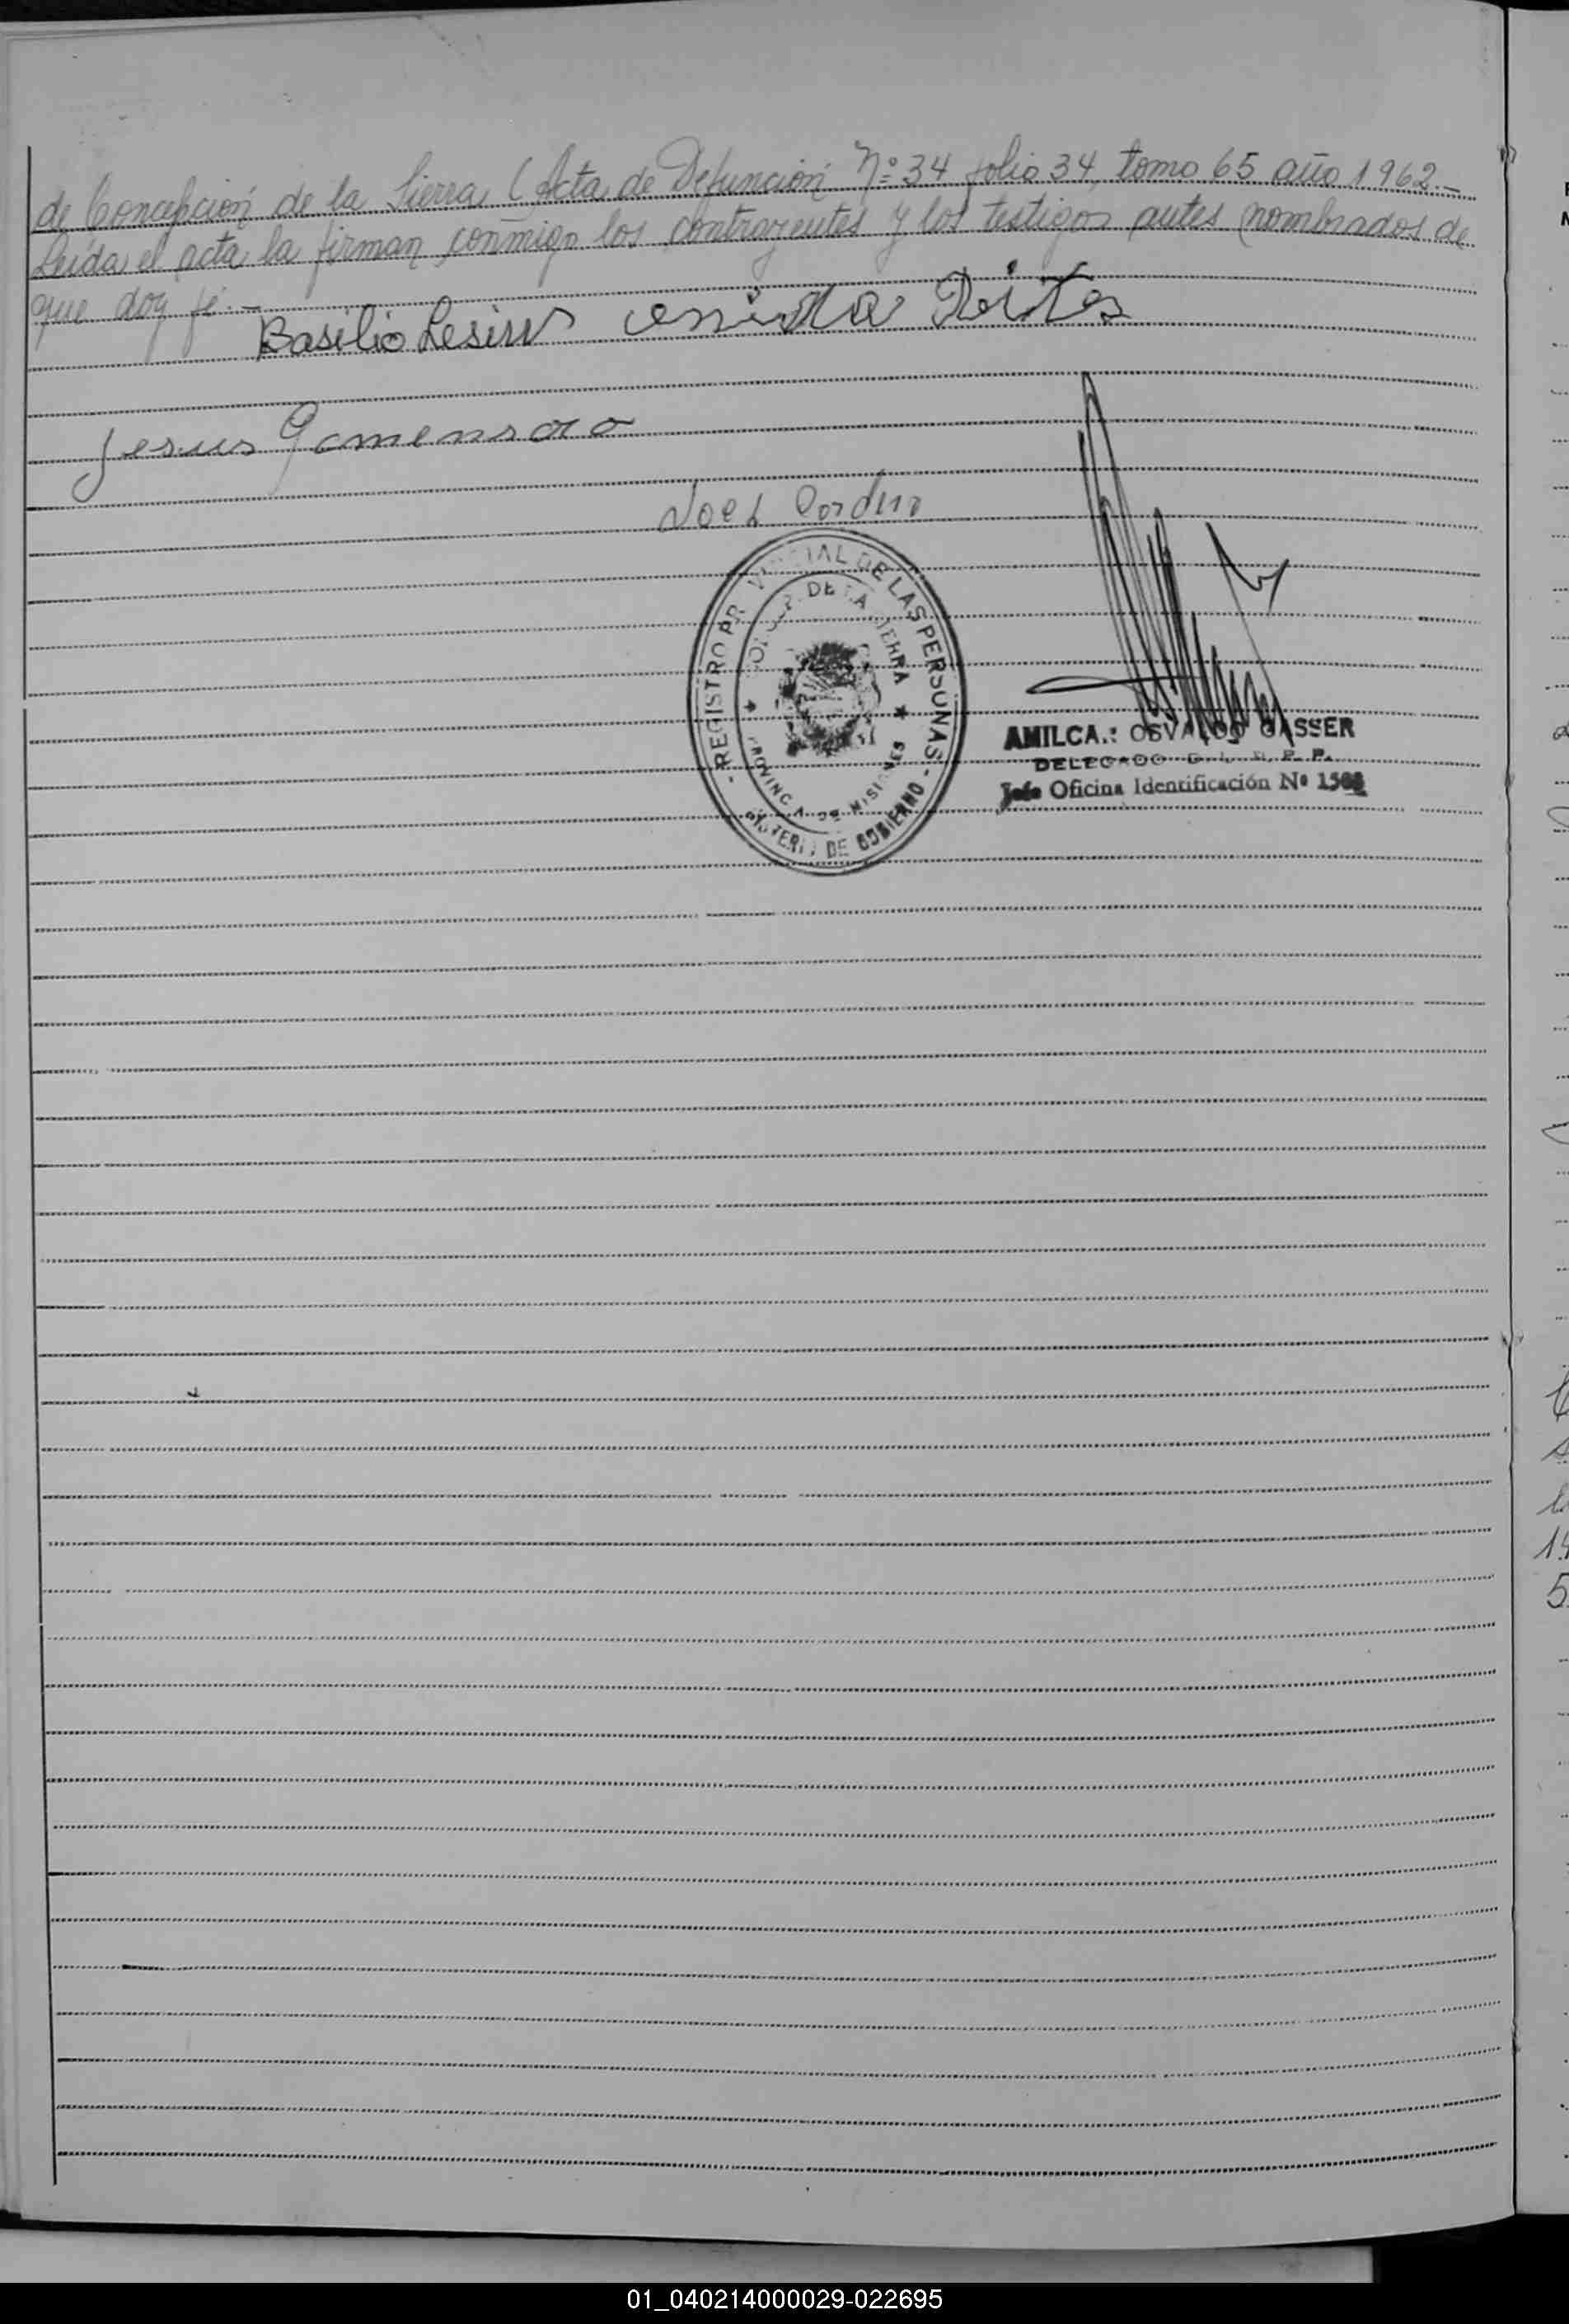 de Concepción de la Sierra (Acta de Defunción Nº 34 folio 34, tomo 65 año 1962.-
Leída el acta la firman conmigo los contrayentes y los testigos antes nombrados de
que doy fé.-
Basilio
Jesus
REGISTRO PROVINCIAL DE LAS PERSONAS
DE LA SIERRA
PROVINCIA DE MISIONES
MINISTERIO DE GOBIERNO
AMILCAR OSVALDO GASSER
DELEGADO
Jefe Oficina Identificación Nº
01_040214000029-022695